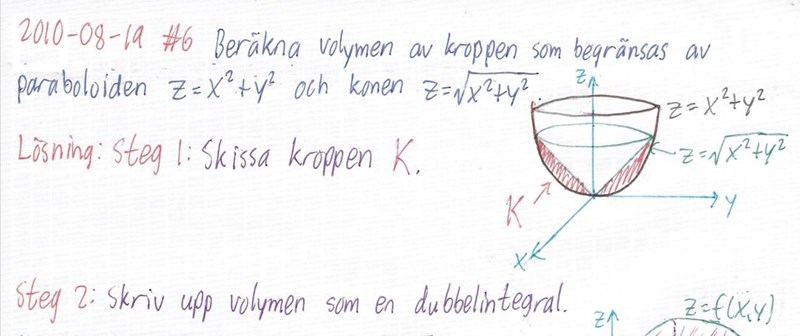 2010-08-19 #6 Beräkna volymen av kroppen som begränsas av
paraboloiden z=x²+y² och konen z=√x²+y².
z
z=x²+y²
z=√x²+y²
Lösning: Steg 1: Skissa kroppen K.
K
y
x
Steg 2: Skriv upp volymen som en dubbelintegral.
z
z=f(x,y)